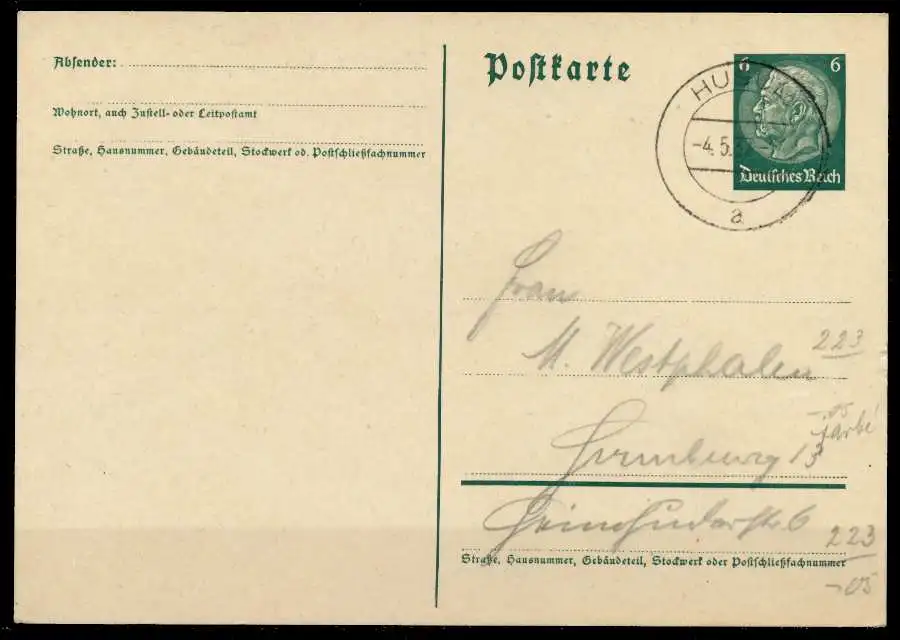 Absender:
Wohnort, auch Zustell- oder Leitpostamt
Straße, Hausnummer, Gebäudeteil, Stockwerk od. Postschließfachnummer
Postkarte
6 6
Deutsches Reich
-4.5.
a
Frau
M. Westphalen
223
-05
Farbe
Hamburg 13
6
223
-05
Straße, Hausnummer, Gebäudeteil, Stockwerk oder Postschließfachnummer